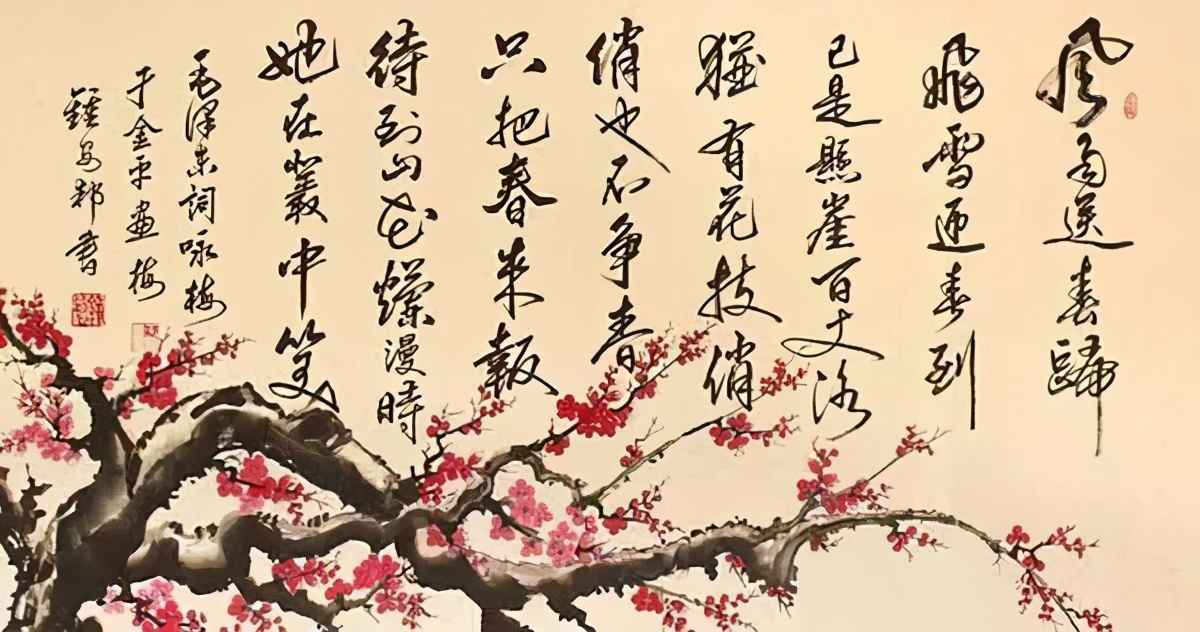 風雨送春歸
飛雪迎春到
已是懸崖百丈冰
猶有花枝俏
俏也不争春
只把春来報
待到山花爛漫時
她在叢中笑
毛澤東詞咏梅
于金平畫梅
書